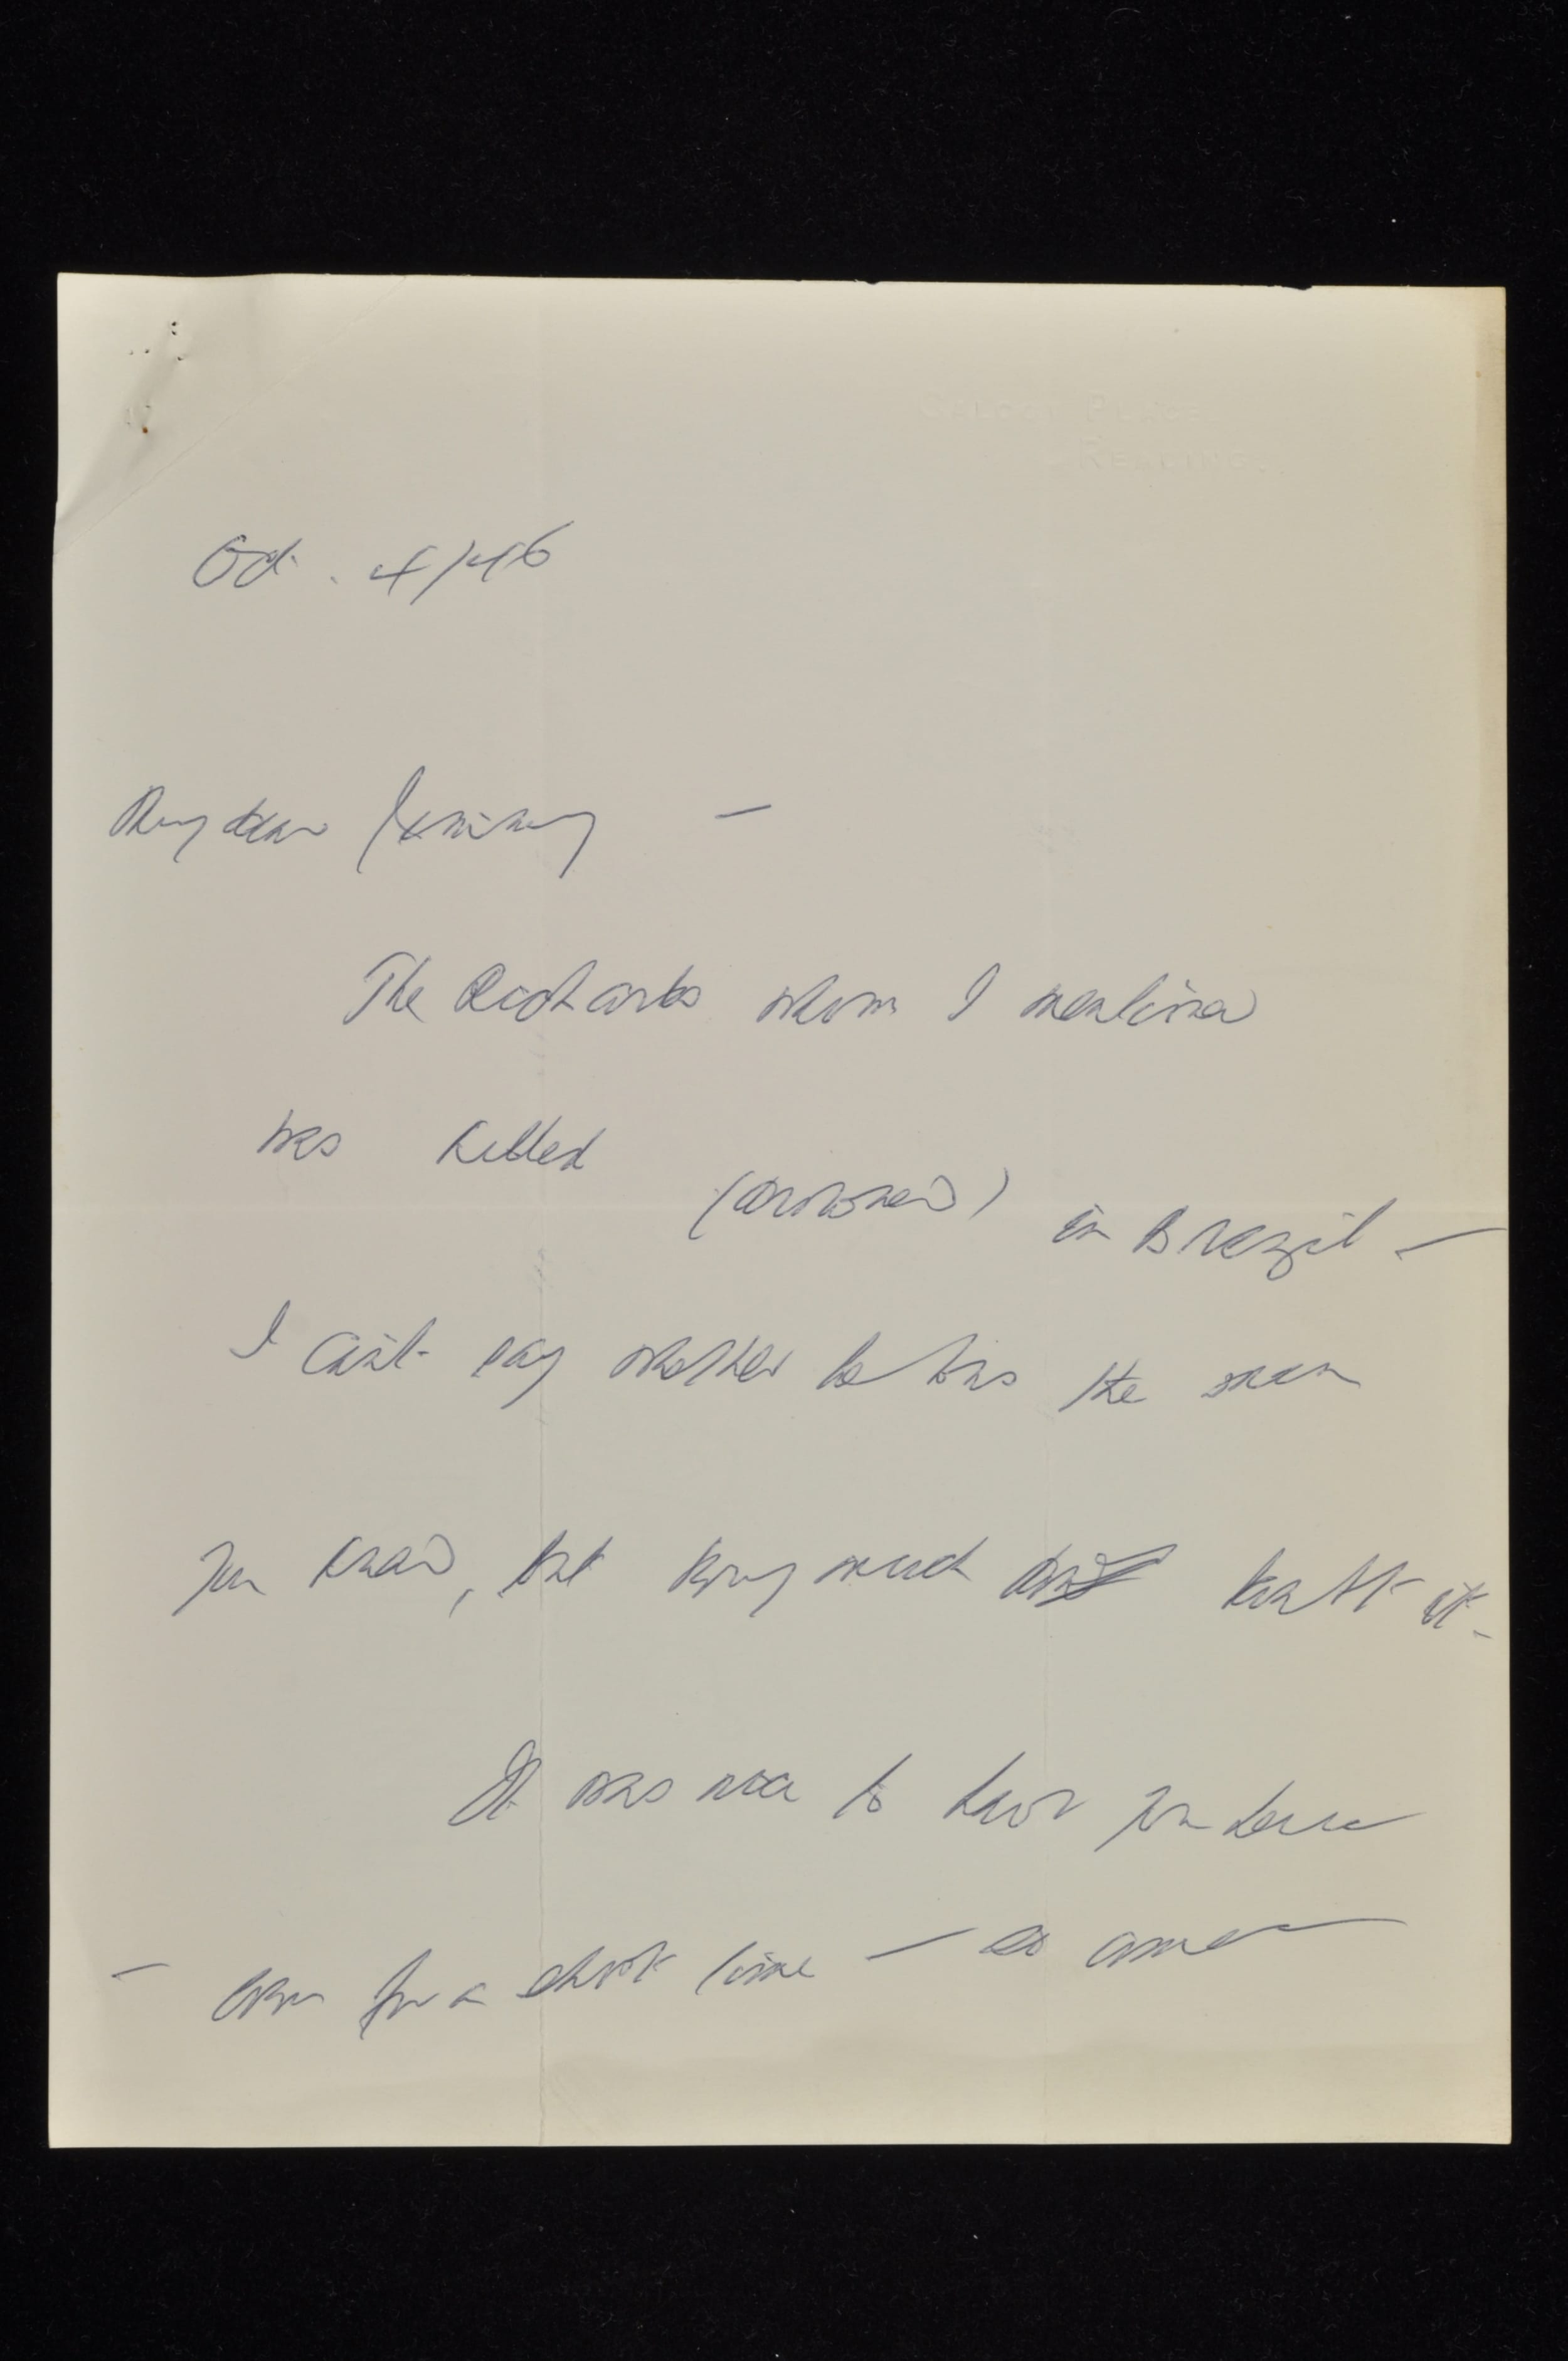 CALCOT PLACE
READING.
Oct. 4/46
My dear Jemimy —
The Richards whom I mentioned
was killed (drowned) in Brazil —
I can't say whether he was the man
you knew, but very much doubt it.
It was nice to have you here
— even for a short time —